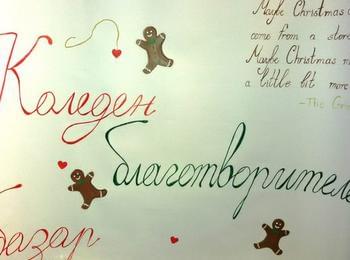 Коледен
благотворителе
базар
Maybe Christmas
come from a store
Maybe Christmas
a little bit more
-The Gr